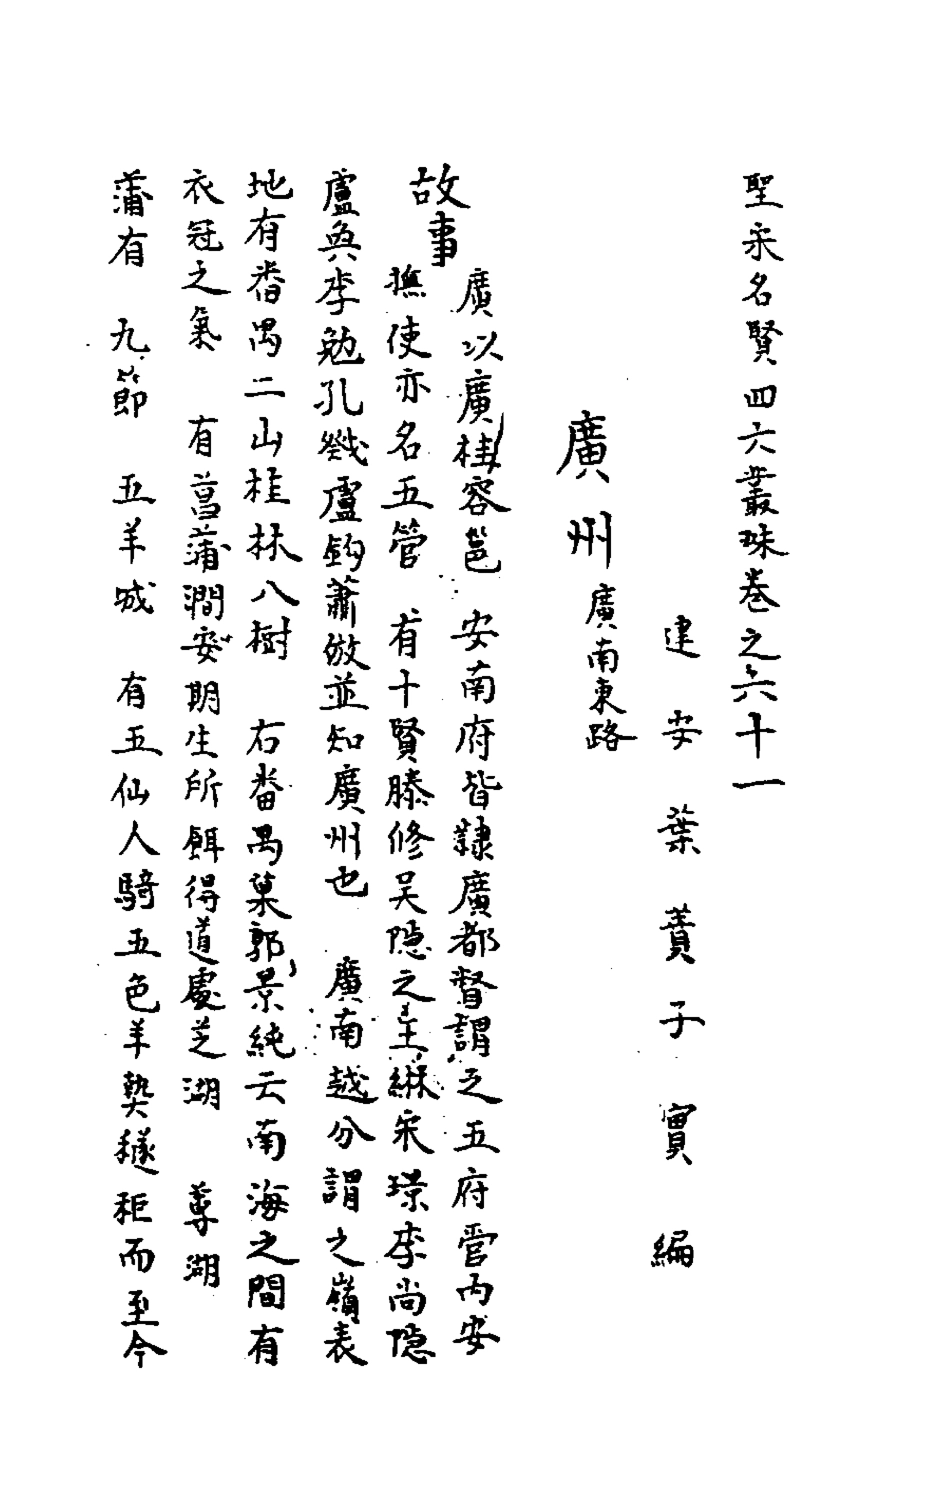 聖宋名賢四六叢珠卷之六十一
建安葉蕡子實編
廣州廣南東路
故事
廣以廣桂容邕 安南府皆隷廣都督謂之五府管内安
撫使亦名五管 有十賢滕修吴隐之王綝宋璟李尚隐
盧奐李勉孔戣盧鈞蕭倣並知廣州也 廣南越分謂之嶺表
地有番禺二山桂林八樹 右番禺巢郭景純云南海之間有
衣冠之氣 有菖蒲澗安期生所餌得道處芝湖 尊湖
蒲有 九節 五羊城 有五仙人騎五色羊奬穟秬而至今